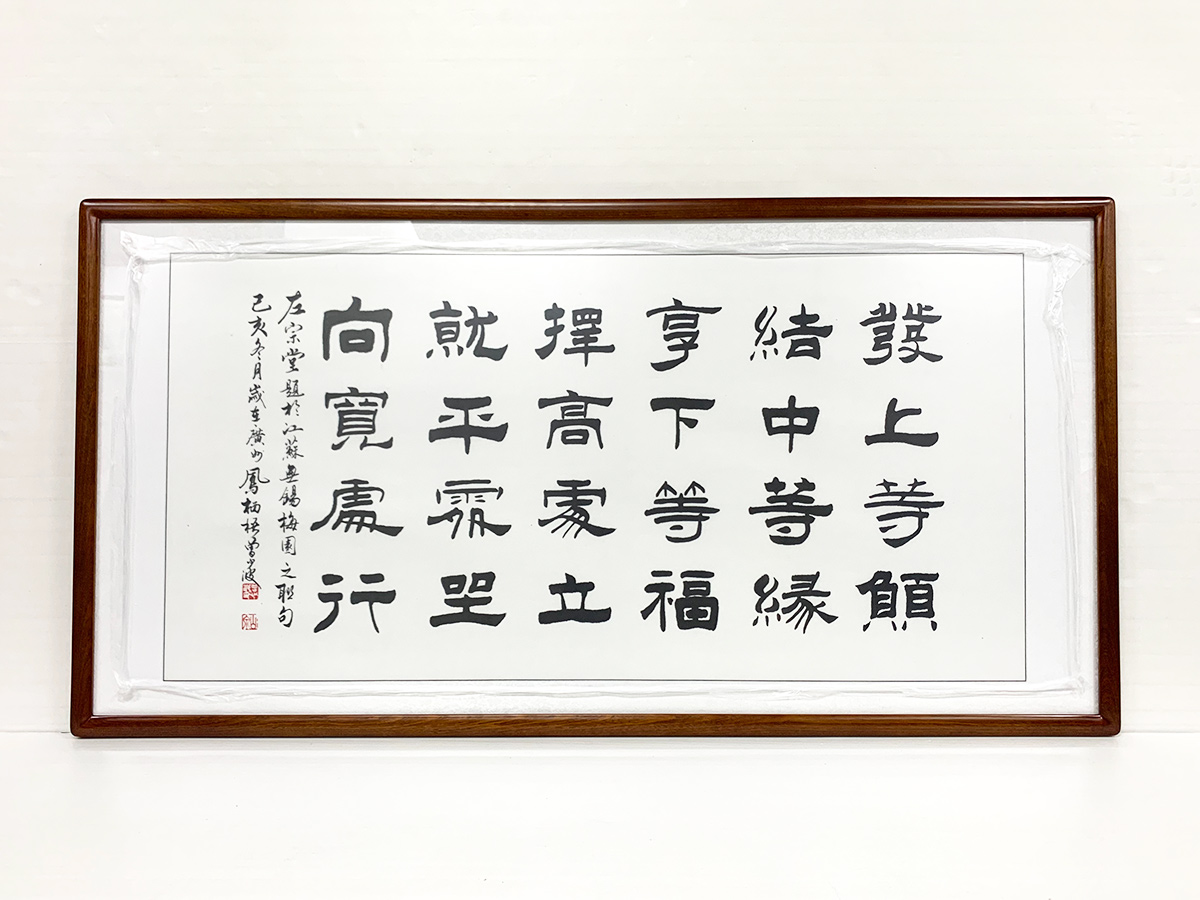 發上等願
結中等緣
享下等福
擇高處立
就平處坐
向寬處行
左宗堂題於江蘇無錫梅園之聯句
己亥冬月歲在廣州鳳栖梧曾波